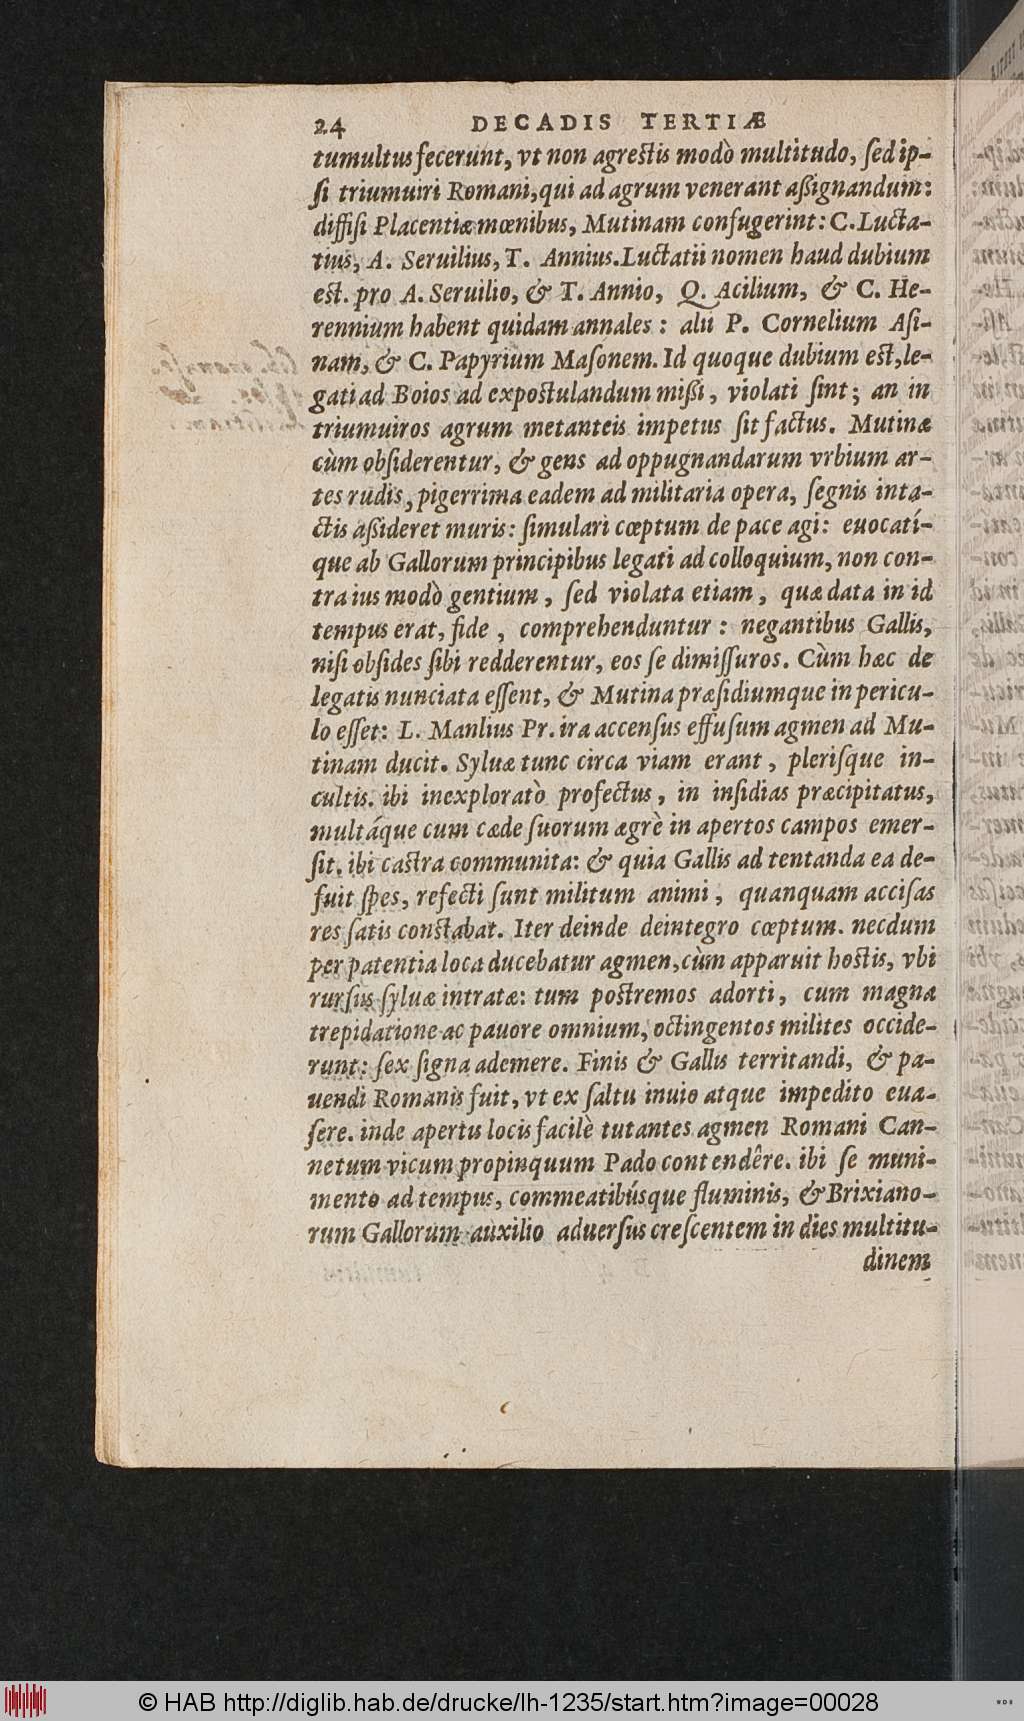 24 DECADIS TERTIÆ
tumultus fecerunt, vt non agrestis modò multitudo, ſed ip-
ſi triumuiri Romani, qui ad agrum venerant aßignandum:
diffiſi Placentiæ mœnibus, Mutinam confugerint: C. Lucta-
tius, A. Seruilius, T. Annius. Luctatii nomen haud dubium
est. pro A. Seruilio, & T. Annio, Q. Acilium, & C. He-
rennium habent quidam annales: alii P. Cornelium Aſi-
nam, & C. Papyrium Maſonem. Id quoque dubium est, le-
gati ad Boios ad expostulandum mißi, violati ſint; an in
triumuiros agrum metanteis impetus ſit factus. Mutinæ
cùm obſiderentur, & gens ad oppugnandarum vrbium ar-
tes rudis, pigerrima eadem ad militaria opera, ſegnis inta-
ctis aßideret muris: ſimulari cœptum de pace agi: euocatí-
que ab Gallorum principibus legati ad colloquium, non con-
tra ius modò gentium, ſed violata etiam, quæ data in id
tempus erat, fide, comprehenduntur: negantibus Gallis,
niſi obſides ſibi redderentur, eos ſe dimiſſuros. Cùm hæc de
legatis nunciata eſſent, & Mutina præſidiumque in pericu-
lo eſſet: L. Manlius Pr. ira accenſus effuſum agmen ad Mu-
tinam ducit. Syluæ tunc circa viam erant, pleriſque in-
cultis. ibi inexploratò profectus, in inſidias præcipitatus,
multáque cum cæde ſuorum ægrè in apertos campos emer-
ſit. ibi castra communita: & quia Gallis ad tentanda ea de-
fuit ſpes, refecti ſunt militum animi, quanquam acciſas
res ſatis constabat. Iter deinde deintegro cœptum. necdum
per patentia loca ducebatur agmen, cùm apparuit hostis, vbi
rurſus ſyluæ intratæ: tum postremos adorti, cum magna
trepidatione ac pauore omnium, octingentos milites occide-
runt: ſex ſigna ademere. Finis & Gallis territandi, & pa-
uendi Romanis fuit, vt ex ſaltu inuio atque impedito eua-
ſere. inde apertis locis facilè tutantes agmen Romani Can-
netum vicum propinquum Pado contendêre. ibi ſe muni-
mento ad tempus, commeatibúsque fluminis, & Brixiano-
rum Gallorum auxilio aduerſus creſcentem in dies multitu-
dinem
© HAB http://diglib.hab.de/drucke/lh-1235/start.htm?image=00028